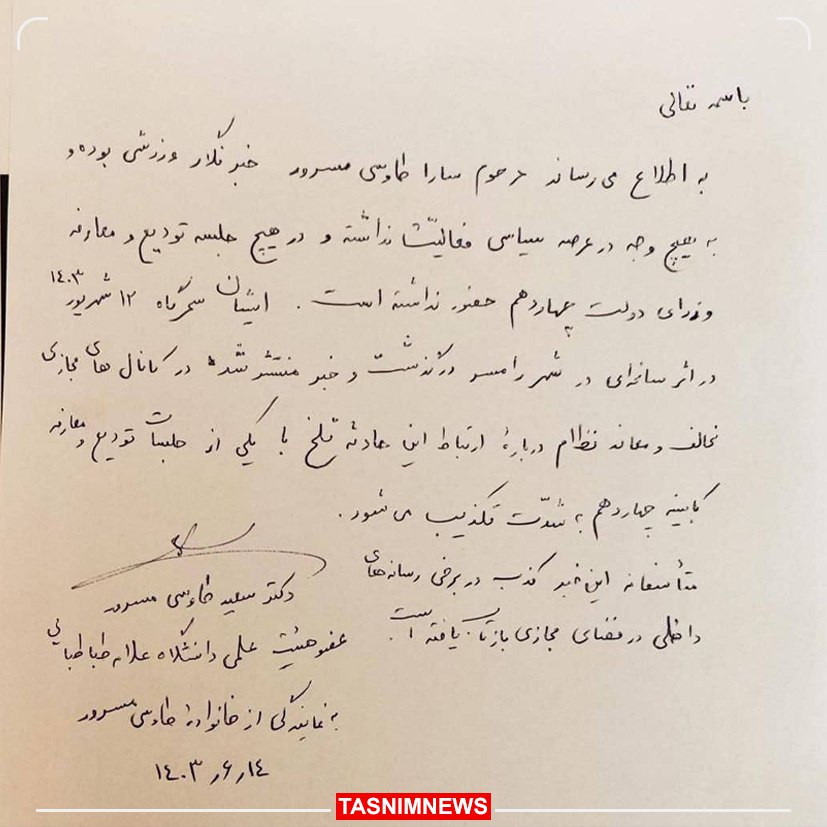 باسمه تعالی
به اطلاع می رساند مرحوم سارا طاوسی مسرور خبرنگار ورزشی بوده و
به هیچ وجه در عرصه سیاسی فعالیت نداشته و در هیچ جلسه تودیع و معارفه
وزرای دولت چهاردهم حضور نداشته است. ایشان سحرگاه ۱۲ شهریور ۱۴۰۳
در اثر سانحه‌ای در شهر رامسر درگذشت و خبر منتشر شده در کانال های مجازی
مخالف و معاند نظام دربارهٔ ارتباط این حادثه تلخ با یکی از جلسات تودیع و معارفه
کابینه چهاردهم به شدّت تکذیب می شود.
متأسفانه این خبر کذب در برخی رسانه های
داخلی در فضای مجازی بازتاب یافته است.
دکتر سعید طاوسی مسرور
عضو هیئت علمی دانشگاه علامه طباطبائی
به نمایندگی از خانوادهٔ طاوسی مسرور
۱۴۰۳٫۶٫۱۴
TASNIMNEWS